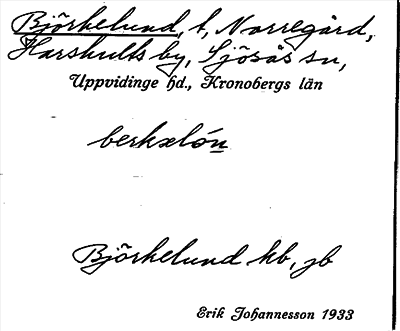 Björkelund, t, Norregård,
Harshults by, Sjösås sn,
Uppvidinge hd., Kronobergs län
berkəló̱n
Björkelund hb, jb
Erik Johannesson 1933